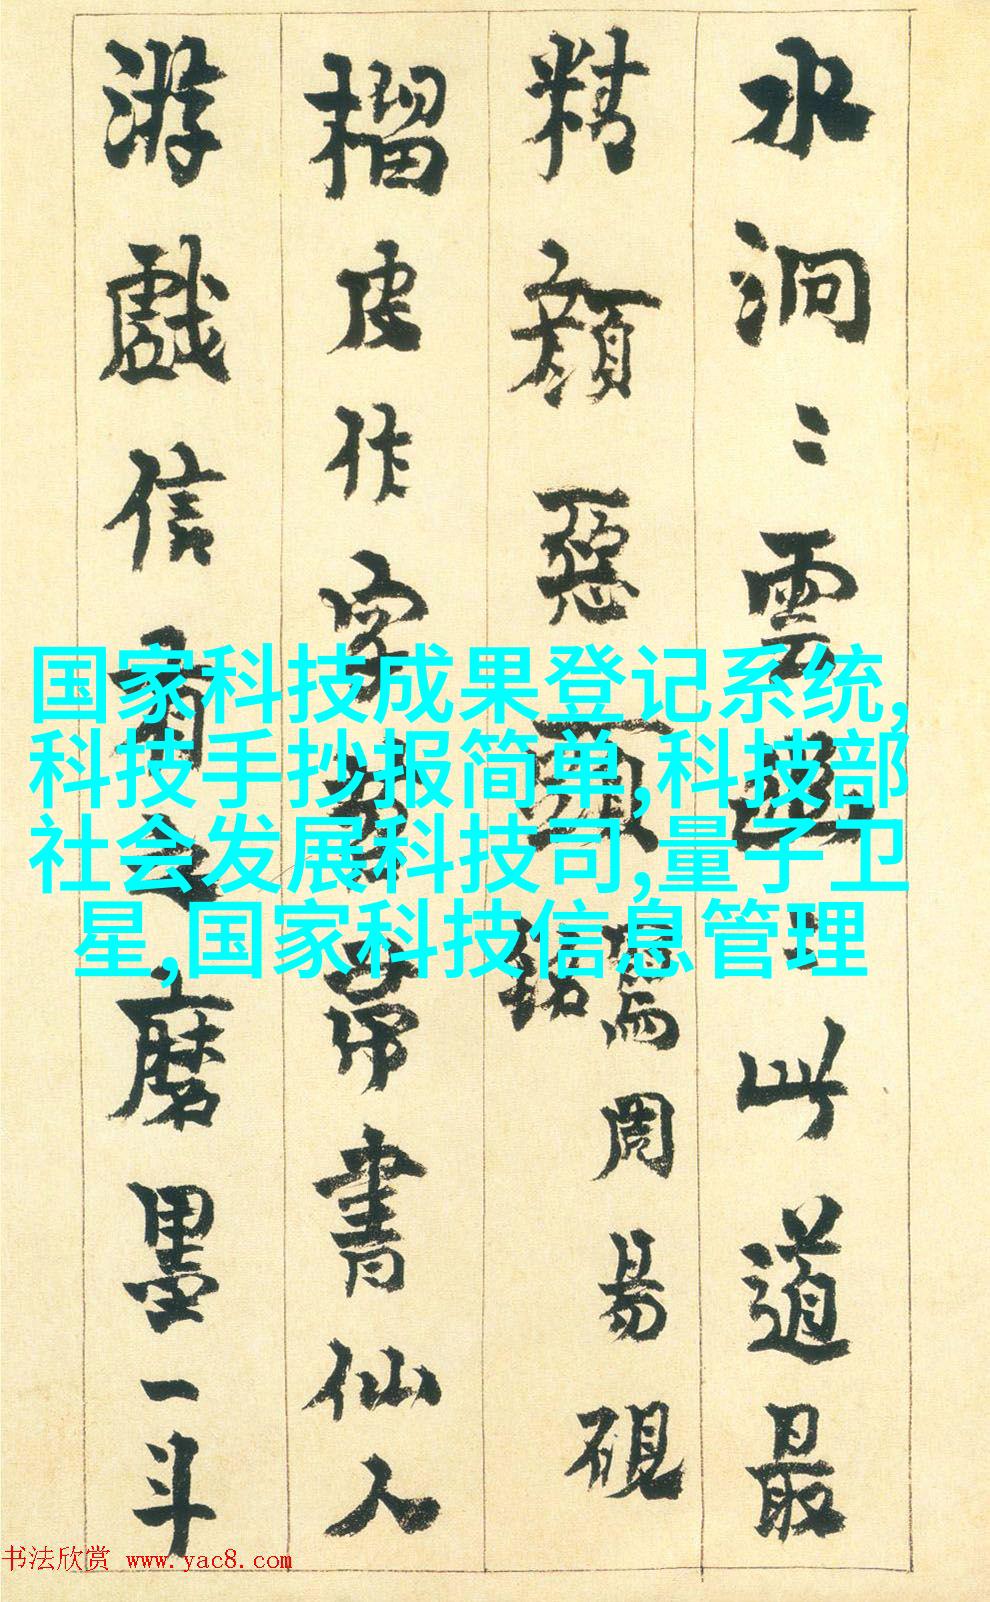 水洞〻雲幽〻此道最
精顏惡頭周易硯
榴皮作字帚書仙人
游戲信有之磨墨一斗
国家科技成果登记系统,
科技手抄报简单,科技部
社会发展科技司,量子卫
星,国家科技信息管理
书法欣赏 www.yac8.com